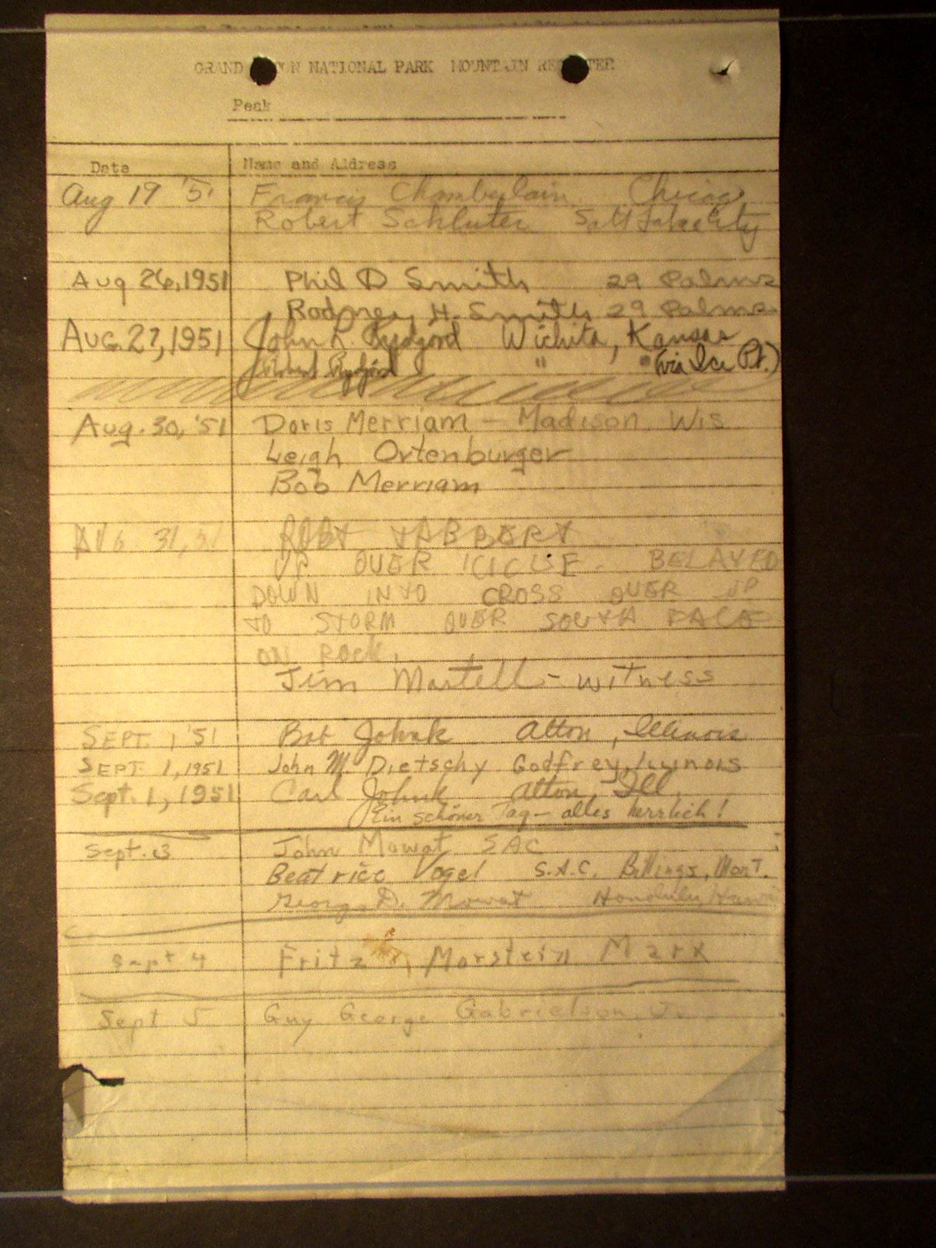 GRAND TETON NATIONAL PARK MOUNTAIN REGISTER
Peak
Date Name and Address
Aug 19 '51 Francis Chamberlain Chicago
Robert Schluter Salt Lake City
Aug 26, 1951 Phil D Smith 29 Palms
Rodney H. Smith 29 Palms
Aug. 27, 1951 John L. Rydjord Wichita, Kansas
Robert Rydjord " " (via Ice Pt.)
Aug. 30, '51 Doris Merriam - Madison, Wis
Leigh Ortenburger
Bob Merriam
AUG. 31, 51 ROBT TABBERT
UP OVER ICICLE. BELAYED
DOWN INTO CROSS OVER UP
TO STORM OVER SOUTH FACE
ON ROCK.
Jim Martell - witness
SEPT. 1 '51 Bob Johnk Alton, Illinois
SEPT 1, 1951 John M. Dietschy Godfrey, Illinois
Sept. 1, 1951 Carl Johnk Alton, Ill.
Ein schöner Tag - alles herrlich!
Sept. 3 John Mowat SAC
Beatrice Vogel S.A.C. Billings, Mont.
George D. Mowat Honolulu, Hawaii
Sept 4 Fritz Morstein Marx
Sept 5 Guy George Gabrielson, Jr.